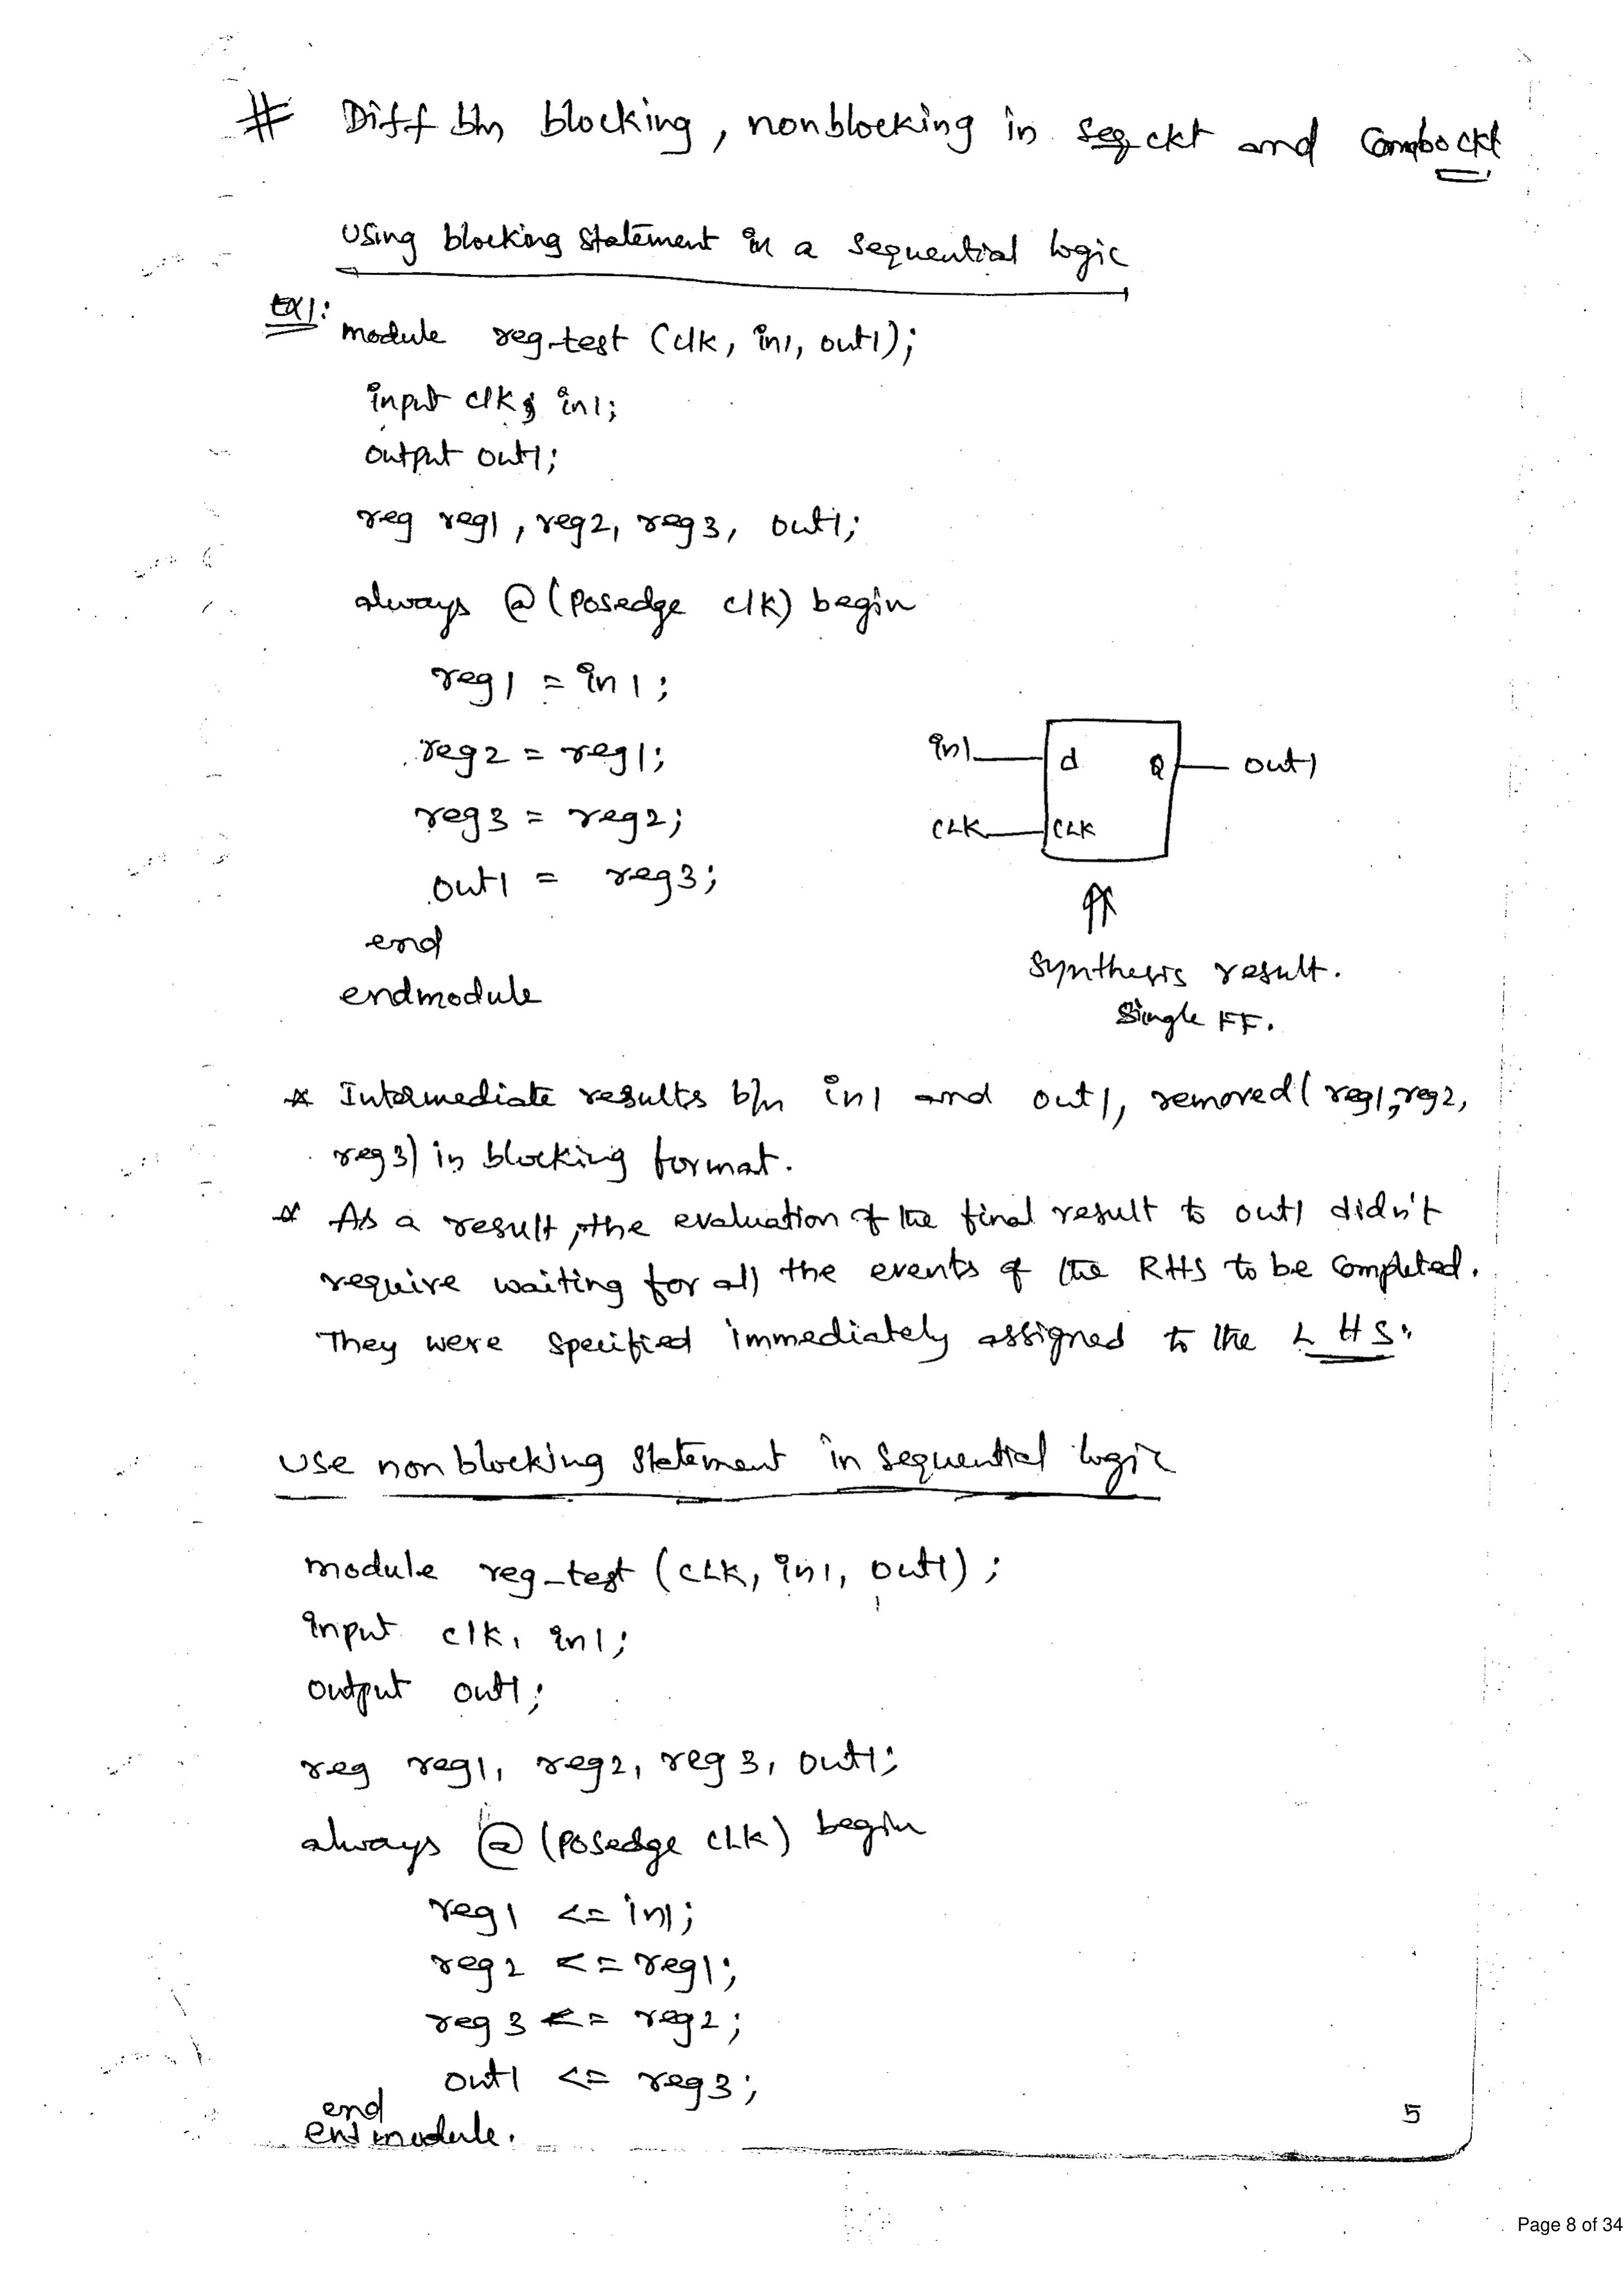 # Diff b/n blocking, nonblocking in seq ckt and Combo ckt
Using blocking statement in a sequential logic
EX1:
module reg_test (clk, in1, out1);
input clk, in1;
output out1;
reg reg1, reg2, reg3, out1;
always @ (posedge clk) begin
reg1 = in1;
reg2 = reg1;
reg3 = reg2;
out1 = reg3;
end
endmodule
in1 d Q out1
CLK CLK
Synthesis result.
Single FF.
* Intermediate results b/n in1 and out1, removed (reg1, reg2,
reg3) in blocking format.
* As a result, the evaluation of the final result to out1 didn't
require waiting for all the events of the RHS to be completed.
They were specified immediately assigned to the LHS.
Use nonblocking statement in sequential logic
module reg_test (CLK, in1, out1);
input clk, in1;
output out1;
reg reg1, reg2, reg3, out1;
always @ (posedge CLK) begin
reg1 <= in1;
reg2 <= reg1;
reg3 <= reg2;
out1 <= reg3;
end
endmodule.
5
Page 8 of 34